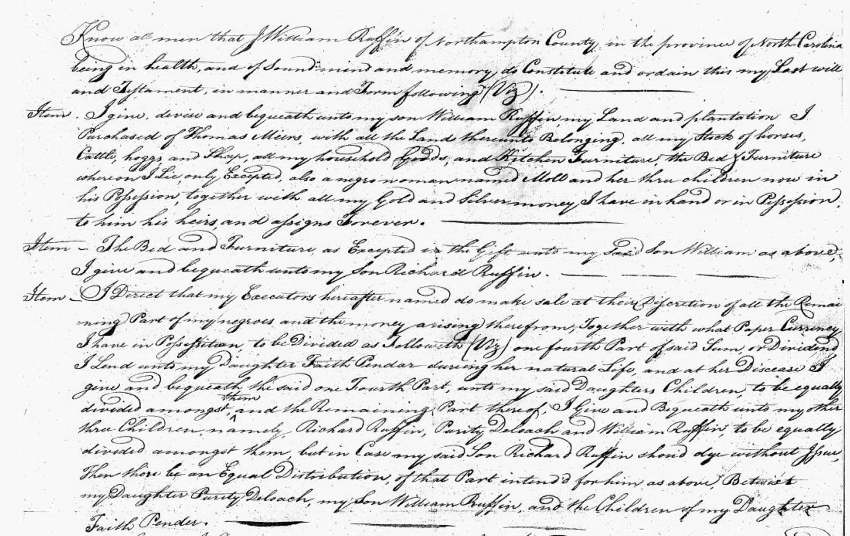 Know al men that J William Ruffin of Northampton County, in the province of North Carolina
being in health, and of Sound mind and memory, do Constitute and ordain this my Last will
and Testament, in manner and Form following (Viz).
Item. I give, devise and bequeath unto my son William Ruffin my Land and plantation I
Purchased of Thomas Mears, with all the Land thereunto Belonging, all my Stock of horses,
Cattle, hoggs, and Sheep, all my household Goods, and Kitchen Furniture, the Bed & Furniture
whereon I Lie, only Excepted, also a negro woman named Moll and her three children now in
his Possession, together with all my Gold and Silver money I have in hand or in Possession,
to him his heirs, and assigns Forever.
Item - The Bed and Furniture, as Excepted in the Gift unto my Said Son William as above,
I give and bequeath unto my Son Richard Ruffin.
Item - I Direct that my Executors hereafter named do make sale at their Discretion of all the Remai
ning Part of my negroes and the money arising therefrom, Together with what Paper Currency
I have in Possession, to be Divided as Followeth (Viz) one fourth Part of said Sum, or Dividend
I Lend unto my Daughter Faith Pendar during her natural Life, and at her Disease I
give and bequeath the said one Fourth Part, unto my said Daughters Children, to be equally
divided amongst them, and the Remaining Part thereof, I Give and Bequeath unto my other
three Children, namely, Richard Ruffin, Purity Deloach and William Ruffin, to be equally
divided amongst them, but in Case my said Son Richard Ruffin should dye without Issue,
Then there be an Equal Distribution, of that Part intend'd for him as above, Betwixt
my Daughter Purity Deloach, my Son William Ruffin, and the Children of my Daughter
Faith Pender.